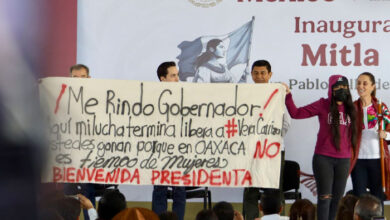 México
Inaugura
Mitla
Pablo Vill
¡Me Rindo Gobernador!
quí mi lucha termina libera a #Vera Carrizal
stedes ganan porque en OAXACA NO
es tiempo de Mujeres
BIENVENIDA PRESIDENTA